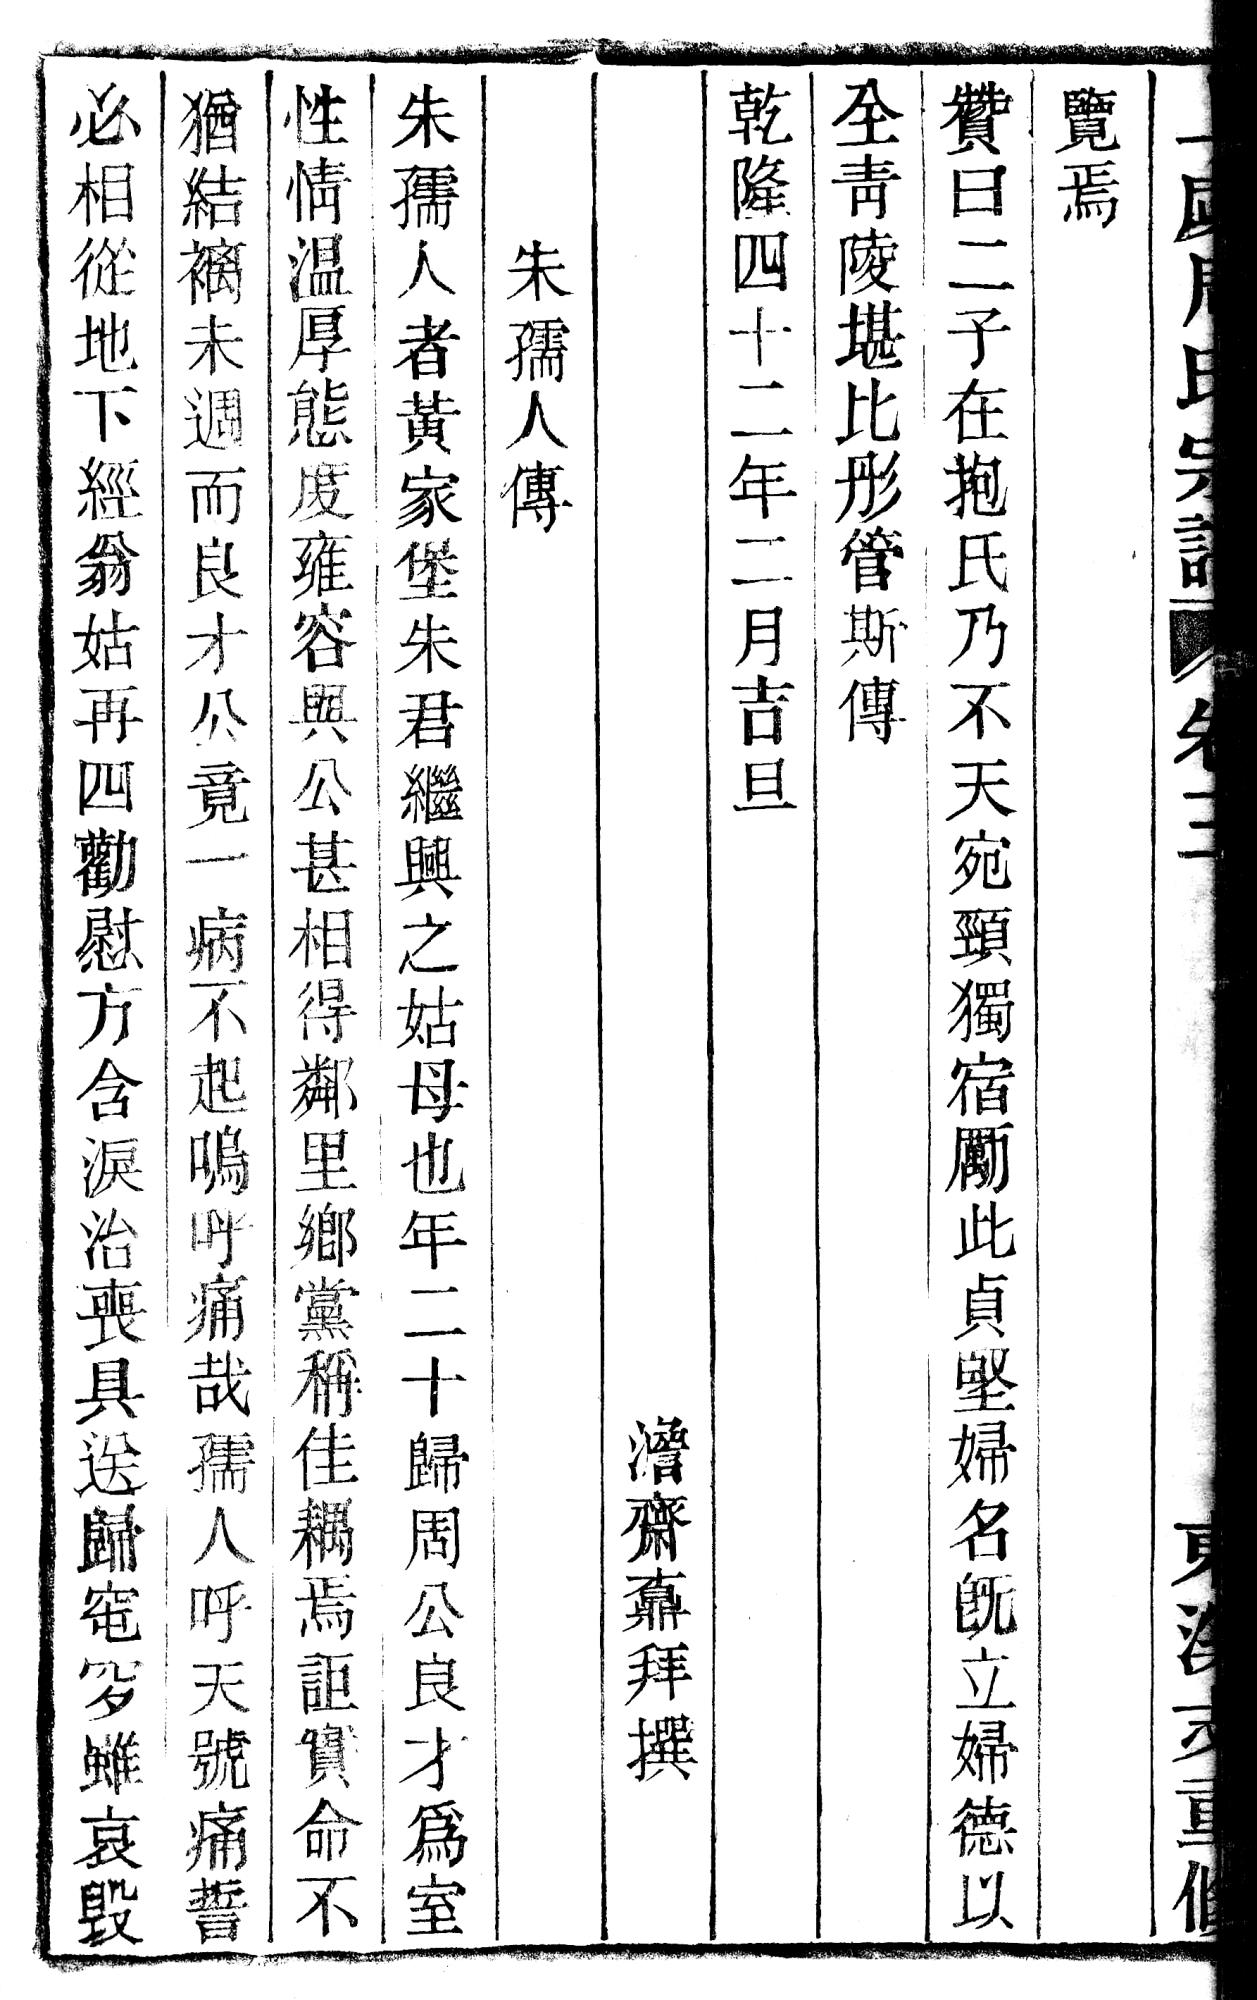 氏宗譜 卷二 重修
覽焉
贊曰二子在抱氏乃不天宛頸獨宿勵此貞堅婦名旣立婦德以
全靑陵堪比彤管斯傳
乾隆四十二年二月吉旦
澹齋鼐拜撰
朱孺人傳
朱孺人者黃家堡朱君繼興之姑母也年二十歸周公良才爲室
性情溫厚態度雍容與公甚相得鄰里鄉黨稱佳耦焉詎實命不
猶結褵未週而良才公竟一病不起嗚呼痛哉孺人呼天號痛誓
必相從地下經翁姑再四勸慰方含淚治喪具送歸窀穸雖哀毀